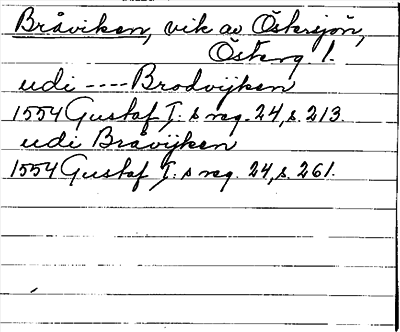 Bråviken, vik av Östersjön,
Österg. l.
udi ---- Brodvijken
1554 Gustaf I. s reg. 24, s. 213.
udi Bråvijken
1554 Gustaf I. s reg. 24, s. 261.